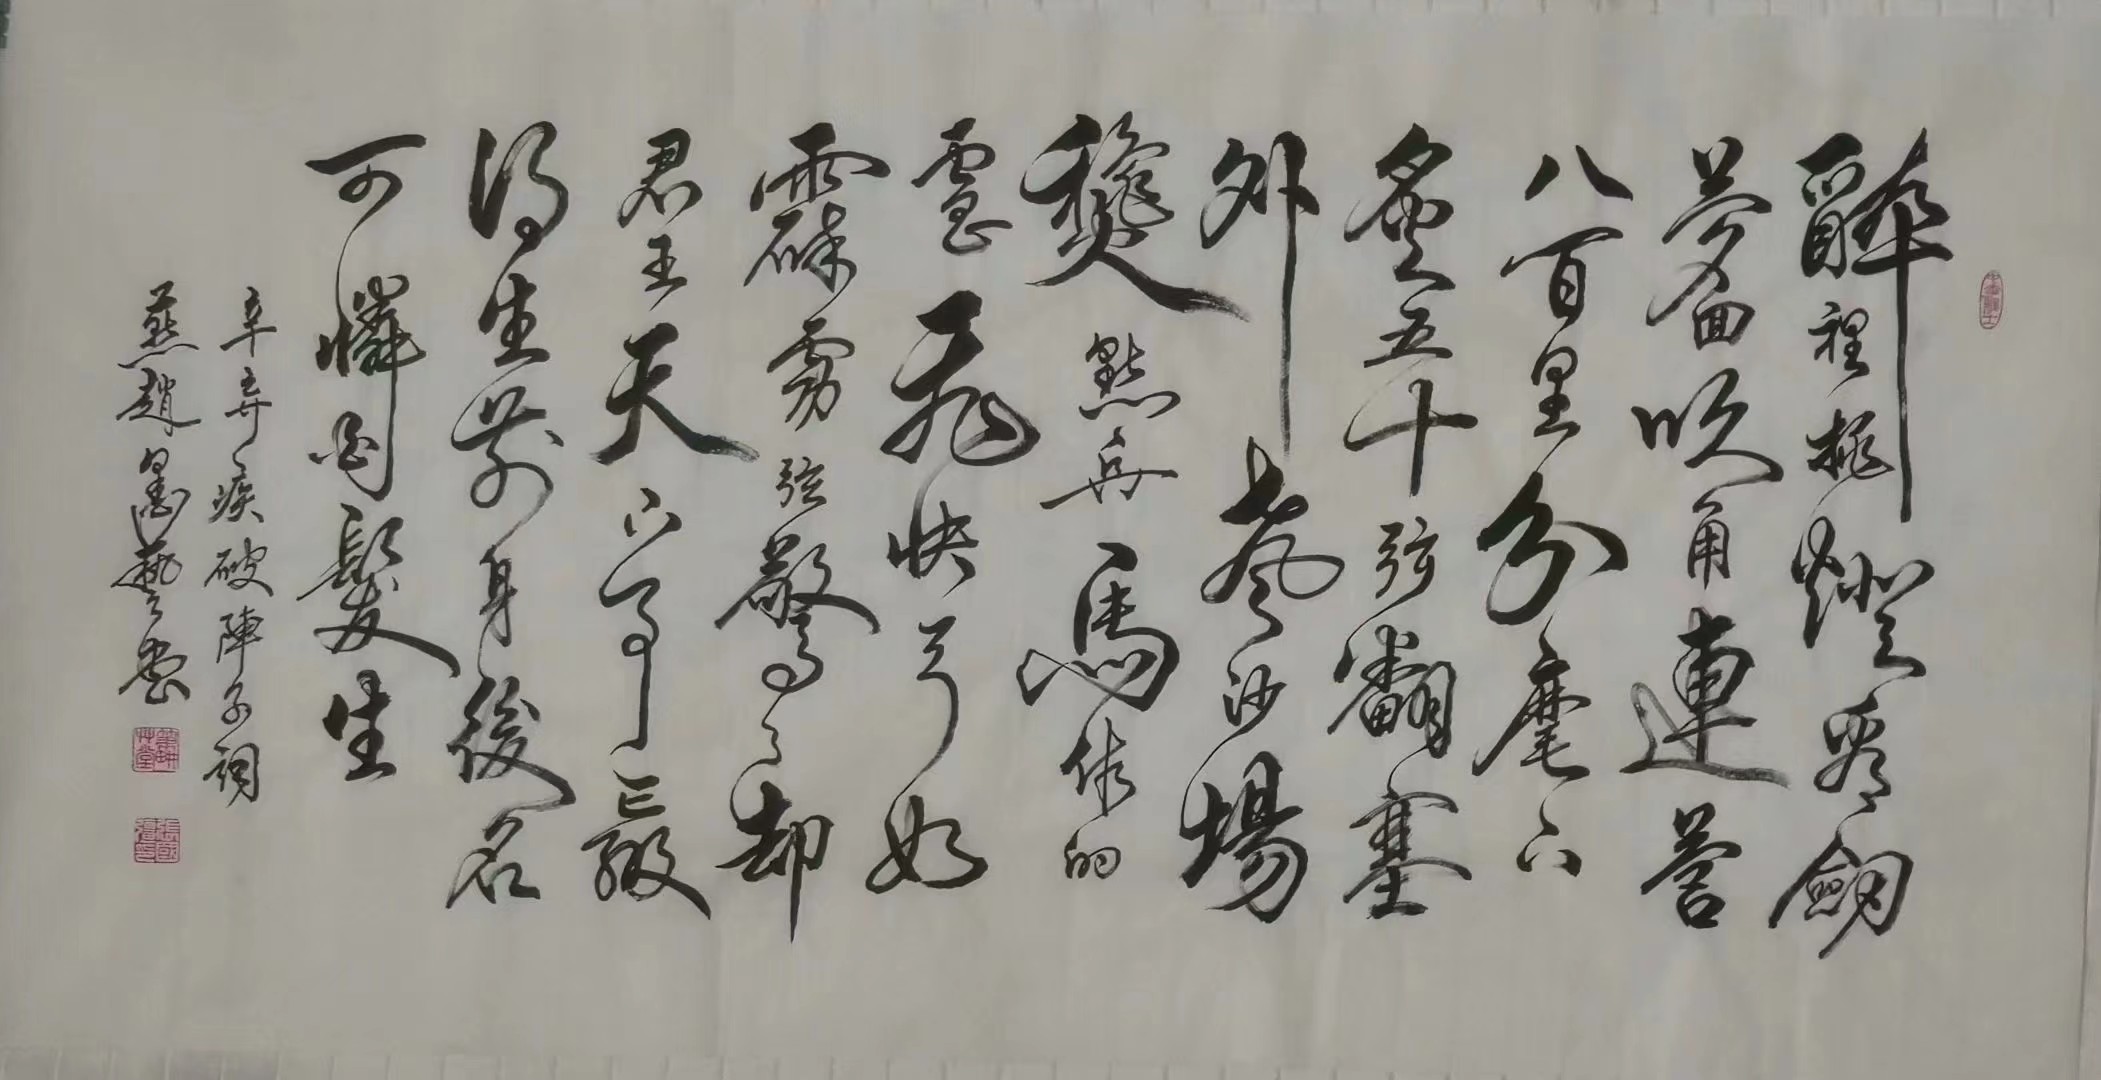 醉裡挑燈看劍
夢回吹角連營
八百里分麾下
炙五十弦翻塞
外聲沙場
秋點兵馬作的
盧飛快弓如
霹靂弦驚了却
君王天下事贏
得生前身後名
可憐白髮生
辛棄疾破陣子詞
燕趙
筆耕草堂